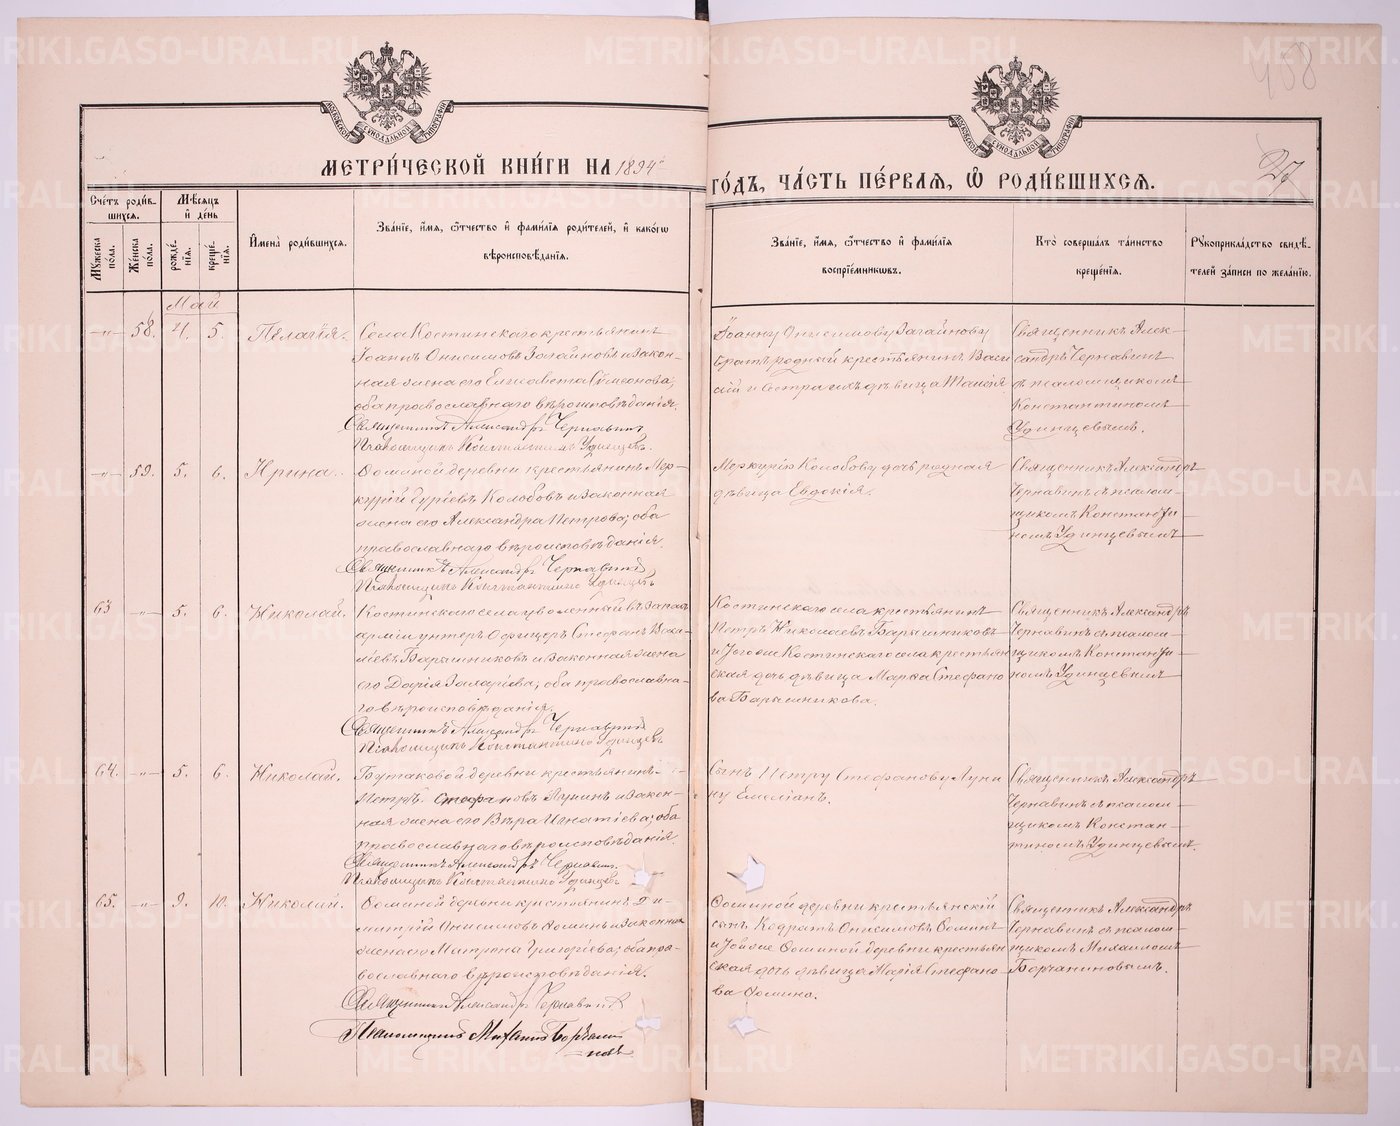 МЕТРИ́ЧЕСКОЙ КНИ́ГИ НА 1894й
ГО́ДЪ, ЧА́СТЬ ПЕ́РВАѦ, Ѡ РОДИ́ВШИХСѦ.
27
Сче́тъ роди́в-
шихсѧ.
Мꙋжеска по́ла.
Же́нска по́ла.
Мѣ́сѧцъ и де́нь
рожде́нїѧ.
креще́нїѧ.
Имена̀ роди́вшихсѧ.
Зва́нїе, и́мѧ, ѻ́тчество и фами́лїѧ роди́телей, и како́гѡ
вѣроисповѣ́данїѧ.
Зва́нїе, и́мѧ, ѻ́тчество и фами́лїѧ
воспрїе́мникѡвъ.
Кто̀ соверша́лъ та́инство
креще́нїѧ.
Рꙋкоприкла́дство свидѣ́-
телей за́писи по жела́нїю.
Май
—"— 58. 4. 5. Пелагія.
Села Костинскаго крестьянинъ
Іоаннъ Онисимовъ Загайновъ и закон-
ная жена его Елисавета Симеонова,
оба православнаго вѣроисповѣданія.
Священникъ Александръ Чернавинъ
Псаломщикъ Константинъ Удинцевъ.
Іоанну Онисимову Загайнову
братъ родный крестьянинъ Васи
лій и сестра ихъ дѣвица Таисія
Священникъ Алек-
сандръ Чернавинъ
съ псаломщикомъ
Константиномъ
Удинцевымъ.
—"— 59. 5. 6. Ирина.
Ѳоминой деревни крестьянинъ Мер-
курій Гуріевъ Колобовъ и законная
жена его Александра Петрова; оба
православнаго вѣроисповѣданія.
Священникъ Александръ Чернавинъ
Псаломщикъ Константинъ Удинцевъ
Меркурію Колобову дочь родная
дѣвица Евдокія.
Священникъ Александръ
Чернавинъ съ псалом-
щикомъ Константи-
номъ Удинцевымъ
63 —"— 5. 6. Николай.
Костинскаго села уволенный въ запасъ
арміи унтеръ Офицеръ Стефанъ
Барышниковъ и законная жена
его Дарія Захаріева; оба православна-
го вѣроисповѣданія.
Священникъ Александръ Чернавинъ
Псаломщикъ Константинъ Удинцевъ
Костинскаго села крестьянинъ
Петръ Николаевъ Барышниковъ
и Костинскаго села крестьян
ская дочь дѣвица Марѳа Стефано
ва Барышникова.
Священникъ Александръ
Чернавинъ съ псалом-
щикомъ Константи-
номъ Удинцевымъ
64. —"— 5. 6. Николай.
Бутаковой деревни крестьянинъ
Петръ Стефановъ Лунинъ и закон-
ная жена его Вѣра Игнатіева; оба
православнаго вѣроисповѣданія.
Священникъ Александръ Чернавинъ.
Псаломщикъ Константинъ Удинцевъ
Сынъ Петру Стефанову Луни
ну Емеліанъ.
Священникъ Александръ
Чернавинъ съ псалом-
щикомъ Констан-
тиномъ Удинцевымъ.
65. —"— 9. 10. Николай.
Ѳоминой деревни крестьянинъ Ди-
митрій Онисимовъ Ѳоминъ и законная
жена его Матрона Григоріева; оба пра-
вославнаго вѣроисповѣданія.
Священникъ Александръ Чернавинъ
Псаломщикъ Михаилъ Борчани-
новъ
Ѳоминой деревни крестьянскій
сынъ Кодратъ Онисимовъ Ѳоминъ
и Ѳоминой деревни крестьян
ская дочь дѣвица Марія Стефано
ва Ѳомина.
Священникъ Александръ
Чернавинъ съ псалом-
щикомъ Михаиломъ
Борчаниновымъ.
METRIKI.GASO-URAL.RU